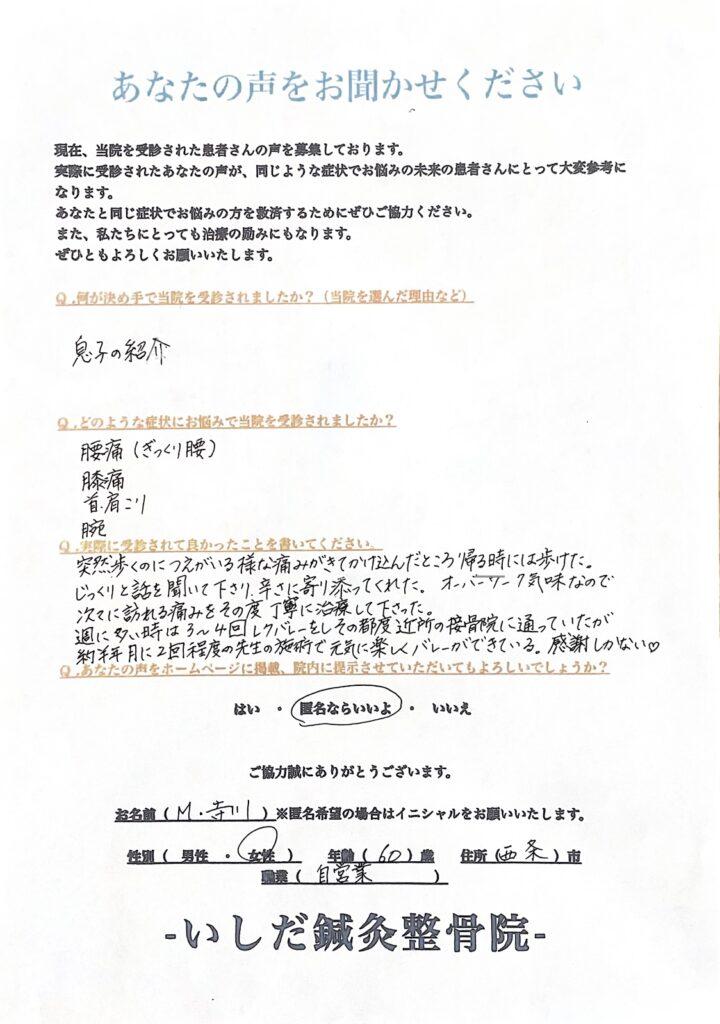 あなたの声をお聞かせください
現在、当院を受診された患者さんの声を募集しております。
実際に受診されたあなたの声が、同じような症状でお悩みの未来の患者さんにとって大変参考に
なります。
あなたと同じ症状でお悩みの方を救済するためにぜひご協力ください。
また、私たちにとっても治療の励みにもなります。
ぜひともよろしくお願いいたします。
Q.何が決め手で当院を受診されましたか？（当院を選んだ理由など）
息子の紹介
Q.どのような症状にお悩みで当院を受診されましたか？
腰痛（ぎっくり腰）
膝痛
首.肩こり
腕
Q.実際に受診されて良かったことを書いてください。
突然歩くのにつえがいる様な痛みがきてかけ込んだところ帰る時には歩けた。
じっくりと話を聞いて下さり、辛さに寄り添ってくれた。オーバーワーク気味なので
次々に訪れる痛みをその度丁寧に治療して下さった。
週に多い時は3〜4回レクバレーをしその都度近所の接骨院に通っていたが
約半年月に2回程度の先生の施術で元気に楽しくバレーができている。感謝しかない♡
Q.あなたの声をホームページに掲載、院内に提示させていただいてもよろしいでしょうか？
はい ・ 匿名ならいいよ ・ いいえ
ご協力誠にありがとうございます。
お名前（M.寺川）※匿名希望の場合はイニシャルをお願いいたします。
性別（ 男性 ・ 女性 ） 年齢（60）歳 住所（西条）市
職業（ 自営業 ）
-いしだ鍼灸整骨院-